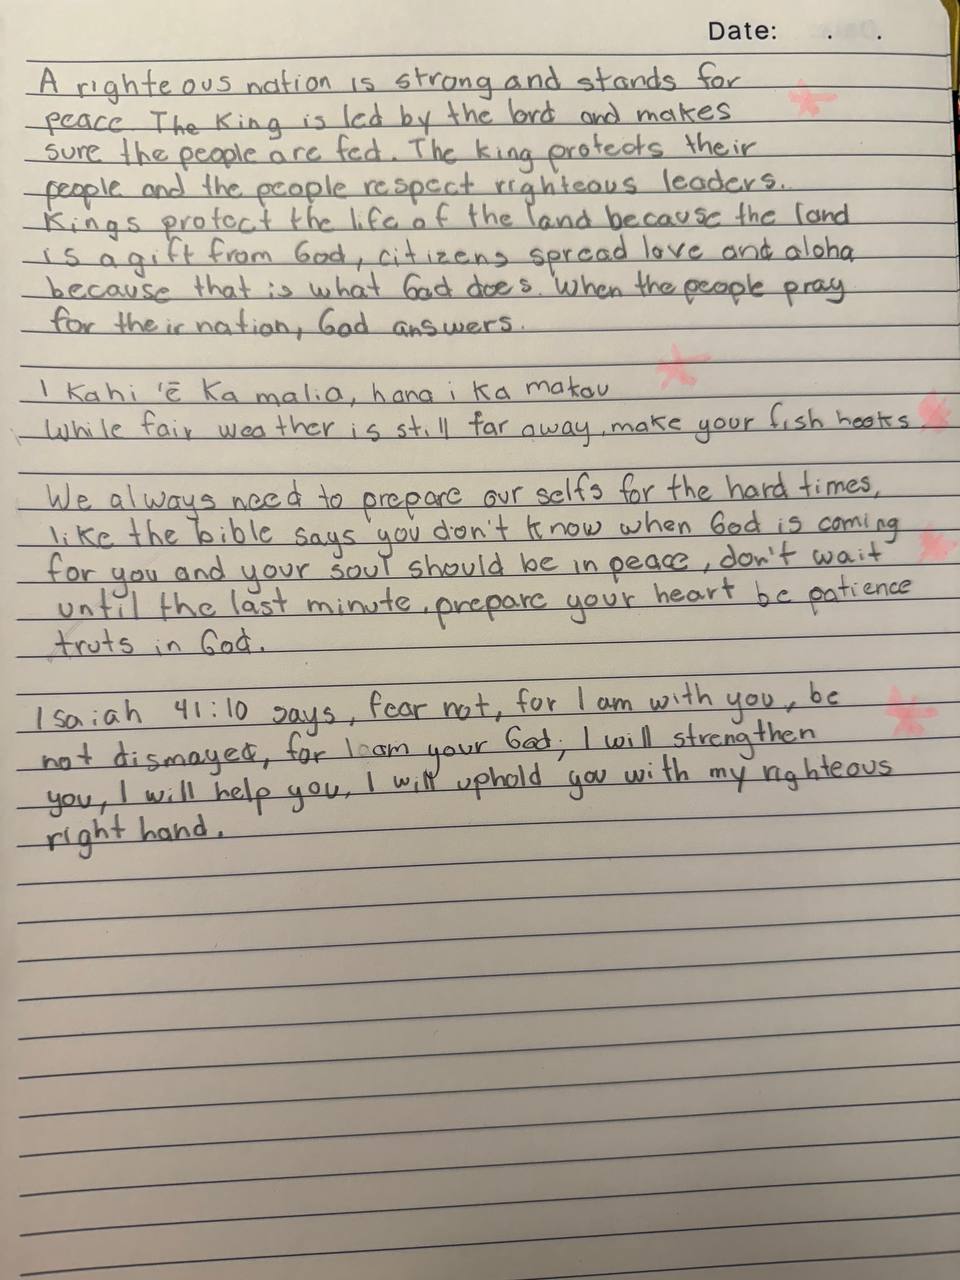 Date: . .
A righteous nation is strong and stands for
peace. The King is led by the lord and makes
sure the people are fed. The king protects their
people and the people respect righteous leaders.
Kings protect the life of the land because the land
is a gift from God, citizens spread love and aloha
because that is what God does. When the people pray
for their nation, God answers.
I Kahi 'ē Ka malia, hana i Ka makau
While fair weather is still far away, make your fish hooks
We always need to prepare our selfs for the hard times,
like the bible says you don't know when God is coming
for you and your soul should be in peace, don't wait
until the last minute, prepare your heart be patience
truts in God.
Isaiah 41:10 says, fear not, for I am with you, be
not dismayed, for I am your God; I will strengthen
you, I will help you, I will uphold you with my righteous
right hand.